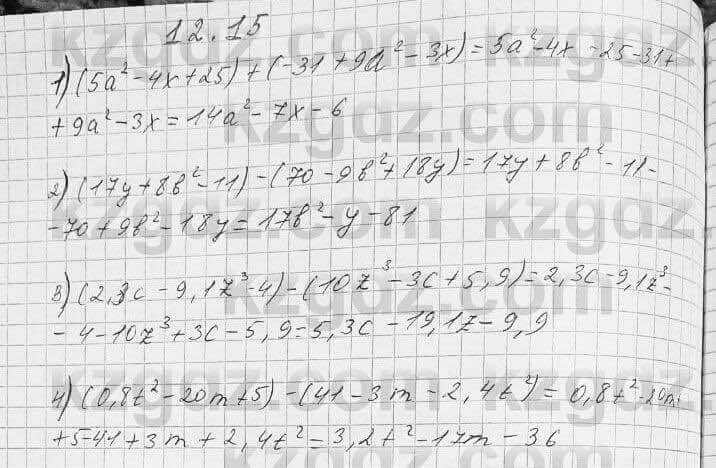 12.15
1) (5a² - 4x + 25) + (-31 + 9a² - 3x) = 5a² - 4x - 25 - 31 +
+ 9a² - 3x = 14a² - 7x - 6
2) (17y + 8b² - 11) - (70 - 9b² + 18y) = 17y + 8b² - 11 -
- 70 + 9b² - 18y = 17b² - y - 81
3) (2,3c - 9,1z³ - 4) - (10z³ - 3c + 5,9) = 2,3c - 9,1z³ -
- 4 - 10z³ + 3c - 5,9 = 5,3c - 19,1z - 9,9
4) (0,8t² - 20m + 5) - (41 - 3m - 2,4t²) = 0,8t² - 20m
+ 5 - 41 + 3m + 2,4t² = 3,2t² - 17m - 36
kzgdz.com